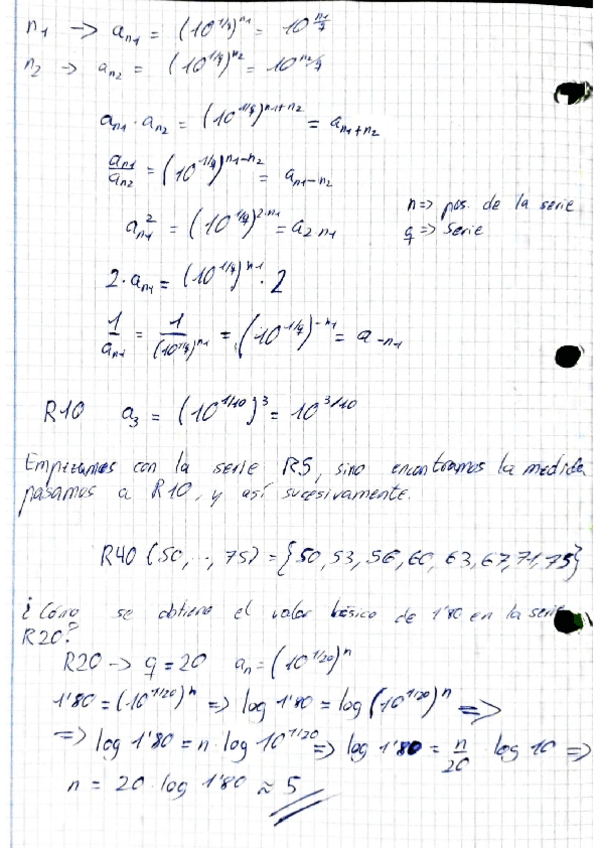 n1 -> a_n1 = (10^1/q)^n1 = 10^n1/q
n2 -> a_n2 = (10^1/q)^n2 = 10^n2/q
a_n1 · a_n2 = (10^1/q)^n1+n2 = a_n1+n2
a_n1/a_n2 = (10^1/q)^n1-n2 = a_n1-n2
n => pos. de la serie
q => Serie
a_n1^2 = (10^1/q)^2·n1 = a_2·n1
2·a_n1 = (10^1/q)^n1 · 2
1/a_n1 = 1/(10^1/q)^n1 = (10^1/q)^-n1 = a_-n1
R10 a_3 = (10^1/10)^3 = 10^3/10
Empezamos con la serie R5, sino encontramos la medida
pasamos a R10, y así sucesivamente.
R40 (50, .., 75) = {50, 53, 56, 60, 63, 67, 71, 75}
¿Cómo se obtiene el valor básico de 1'80 en la serie
R20?
R20 -> q = 20 a_n = (10^1/20)^n
1'80 = (10^1/20)^n => log 1'80 = log (10^1/20)^n =>
=> log 1'80 = n · log 10^1/20 => log 1'80 = n/20 · log 10 =>
n = 20 · log 1'80 ≈ 5